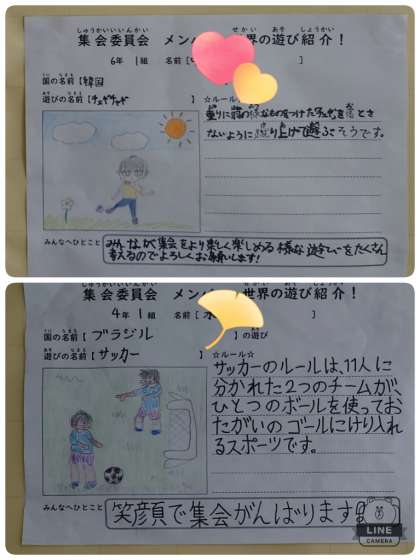 しゅうかいいいんかい せかい あそ しょうかい
集会委員会 メンバー 世界の遊び紹介！
6年 1組 名前【 】
国の名前【韓国
遊びの名前【チェギチャギ
☆ルール☆
重りに羽の様なものをつけたチェギを落とさ
ないように蹴り上げて遊ぶそうです。
みんなへひとこと
みんなが集会をより楽しく楽しめる様な遊びをたくさん
考えるのでよろしくお願いします!
しゅうかいいいんかい せかい あそ しょうかい
集会委員会 メンバー 世界の遊び紹介！
4年 1組 名前【 】
国の名前【ブラジル 】の遊び
遊びの名前【サッカー 】
☆ルール☆
サッカーのルールは、11人に
分かれた2つのチームが、
ひとつのボールを使ってお
たがいのゴールにけり入れ
るスポーツです。
みんなへひとこと
笑顔で集会がんばります
LINE
CAMERA